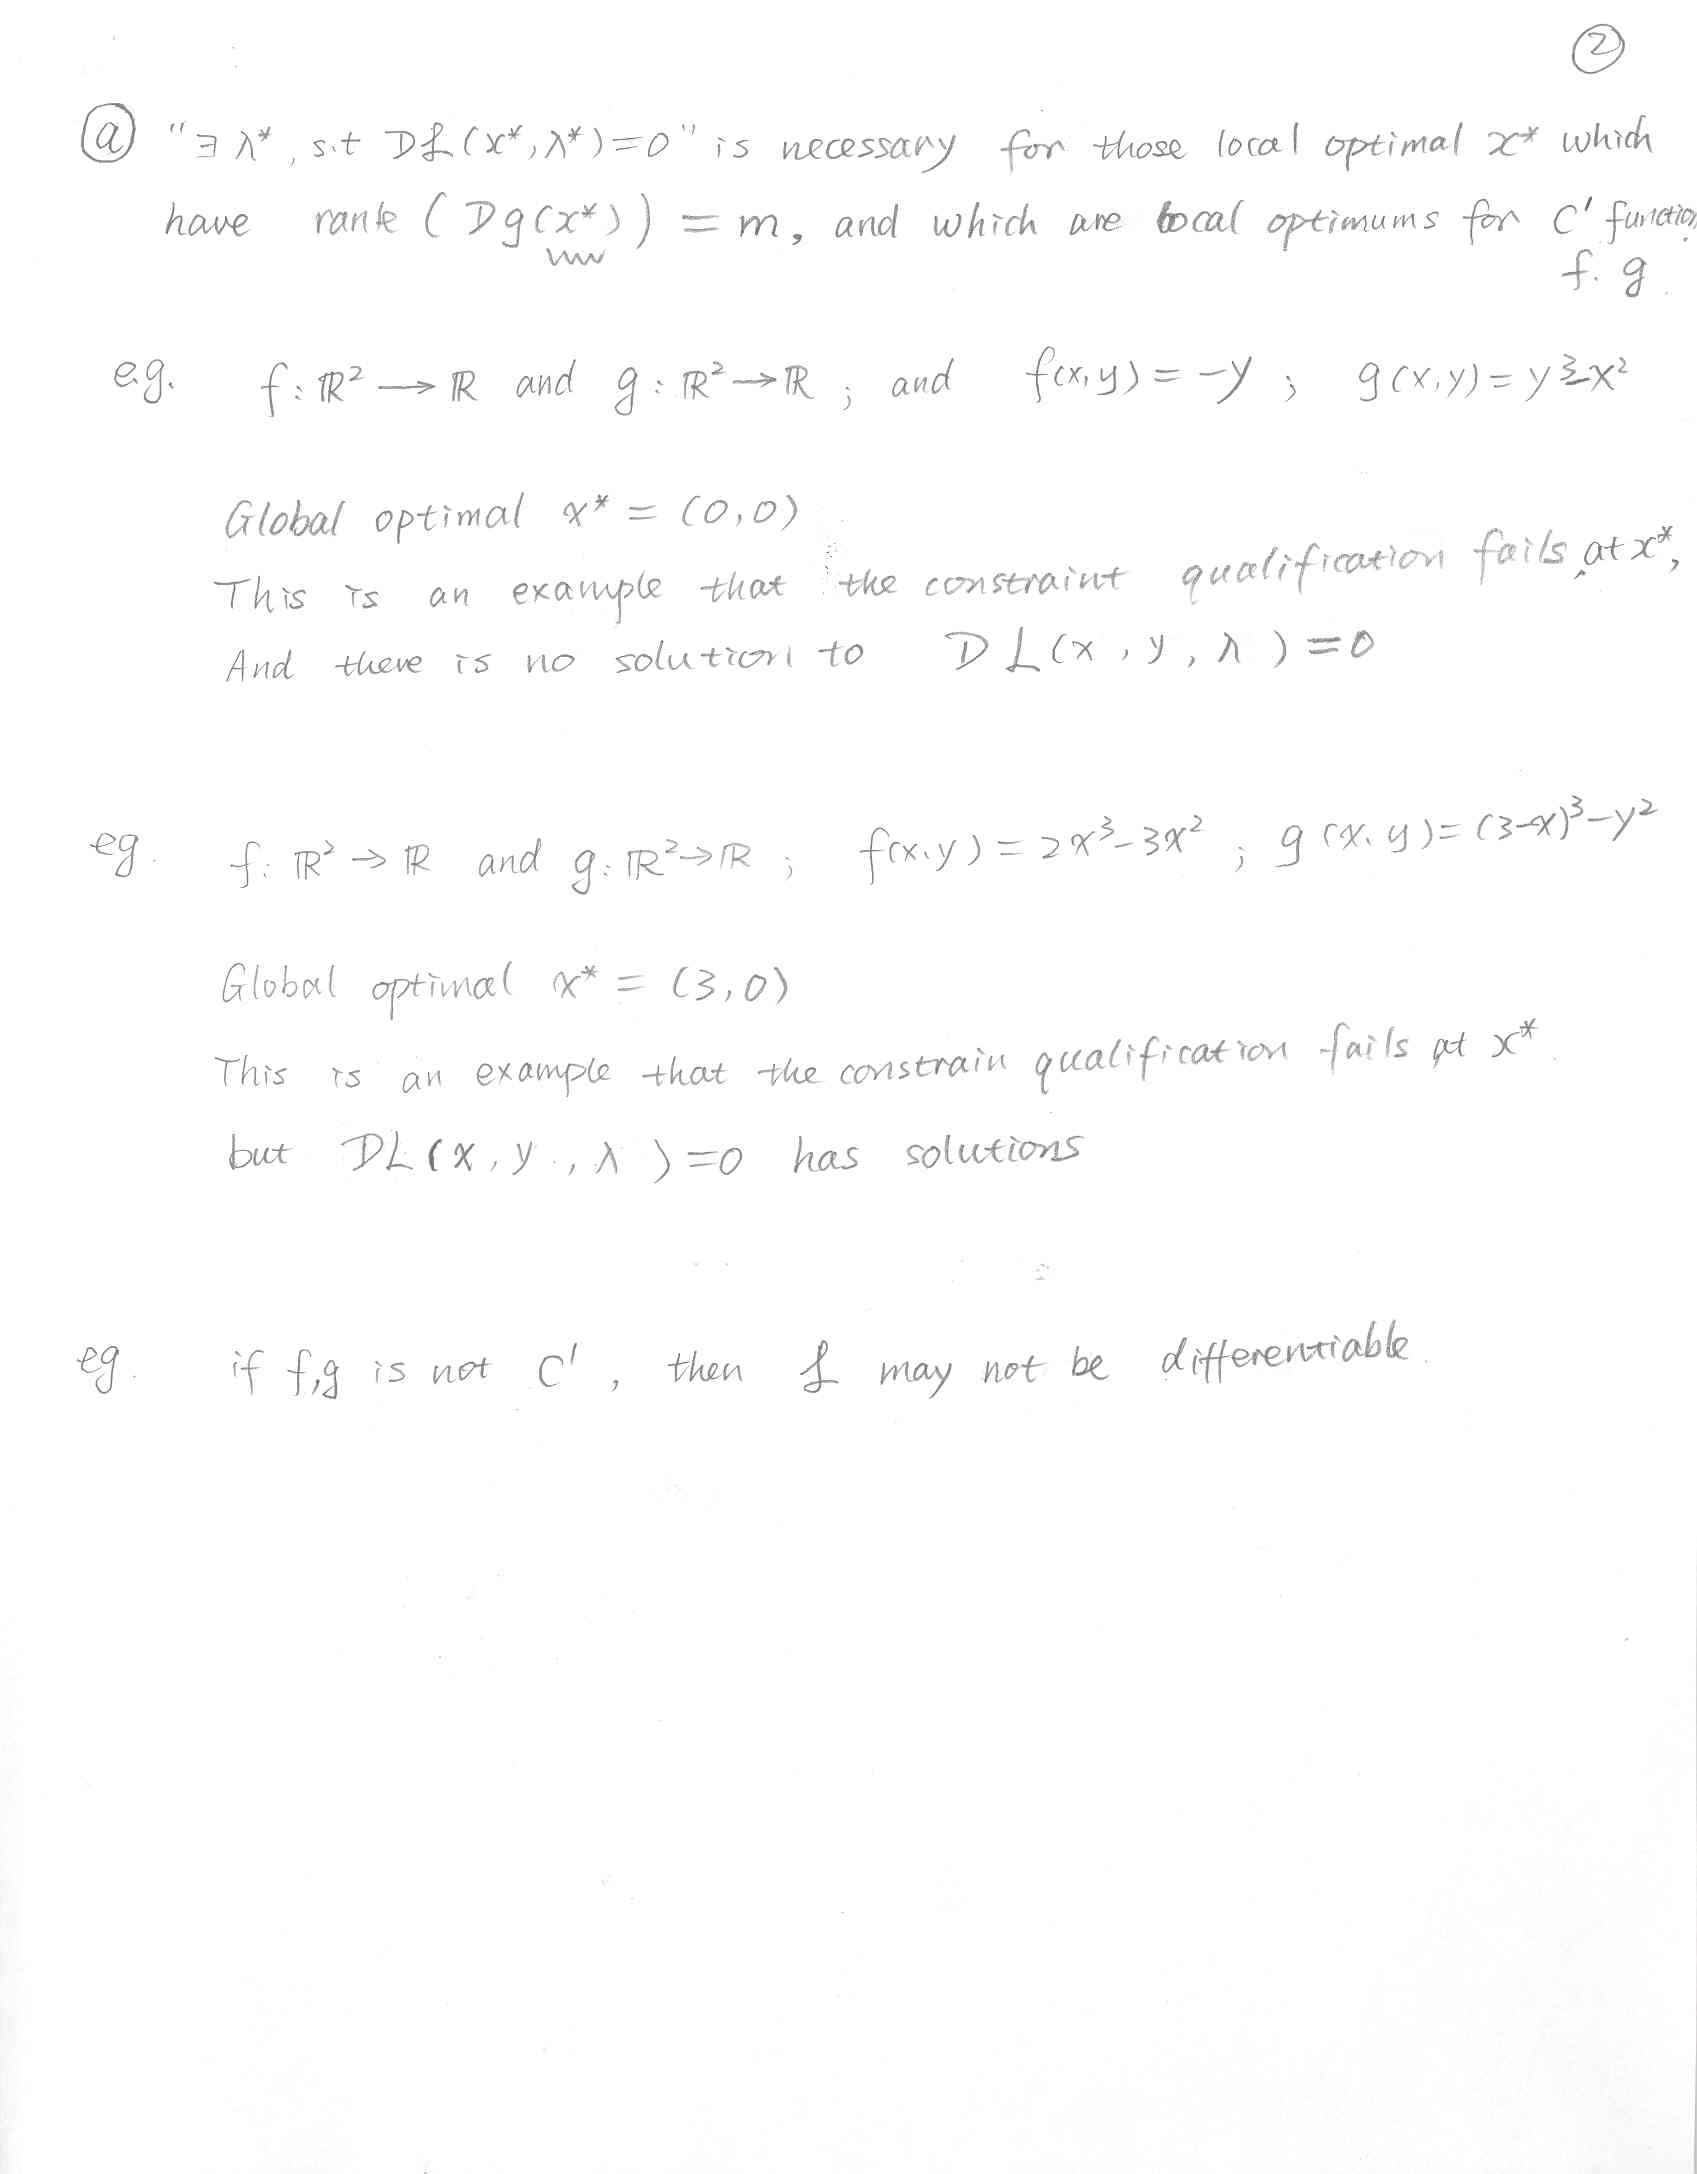 ②
ⓐ "∃ λ*, s.t Dℒ(x*, λ*)=0" is necessary for those local optimal x* which
have rank (Dg(x*)) = m, and which are local optimums for C' function
f. g.
e.g. f: ℝ² → ℝ and g: ℝ² → ℝ ; and f(x,y) = -y ; g(x,y) = y³-x²
Global optimal x* = (0,0)
This is an example that the constraint qualification fails at x*,
And there is no solution to DL(x, y, λ) = 0
eg. f: ℝ² → ℝ and g: ℝ² → ℝ ; f(x,y) = 2x³-3x² ; g(x,y) = (3-x)³-y²
Global optimal x* = (3,0)
This is an example that the constrain qualification fails at x*.
but DL(x, y, λ) = 0 has solutions
eg. if f,g is not C', then ℒ may not be differentiable.